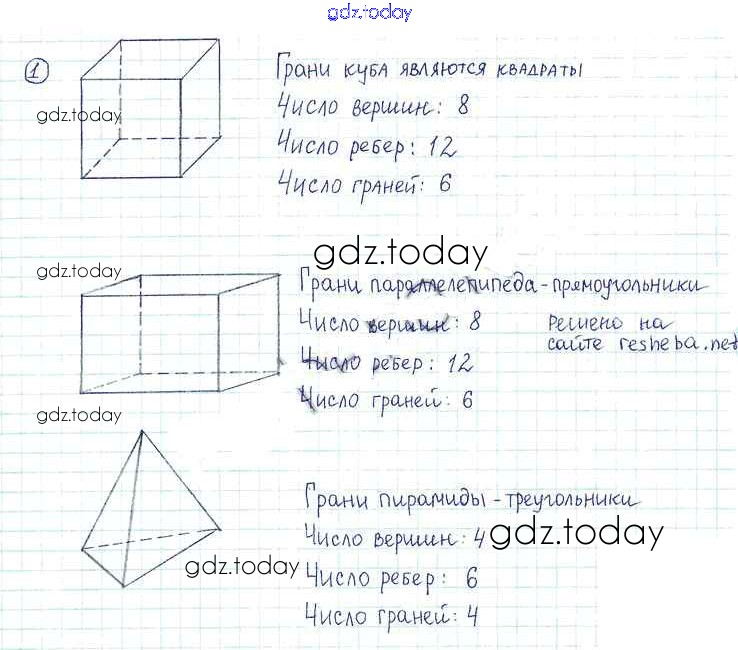 gdz.today
1
Грани куба являются квадраты
gdz.today
Число вершин: 8
Число ребер: 12
Число граней: 6
gdz.today
gdz.today
Грани параллелепипеда - прямоугольники
Число вершин: 8
Решено на
сайте resheba.net
Число ребер: 12
Число граней: 6
gdz.today
Грани пирамиды - треугольники
Число вершин: 4
gdz.today
gdz.today
Число ребер: 6
Число граней: 4